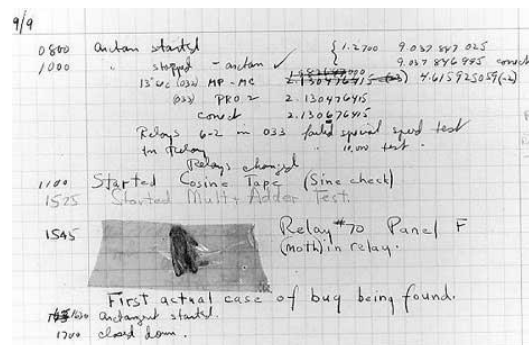 9/9
0800 Antan started
1000 " stopped - antan ✓ { 1.2700 9.037 847 025
9.037 846 995 correct
13"uc (032) MP - MC 4.615925059(-2)
(033) PRO 2 2.130476415
correct 2.130676415
Relays 6-2 in 033 failed special speed test
in Relay " 11.000 test.
Relays changed
1100 Started Cosine Tape (Sine check)
1525 Started Mult + Adder Test.
1545 Relay #70 Panel F
(moth) in relay.
First actual case of bug being found.
1630 Antangent started.
1700 closed down.